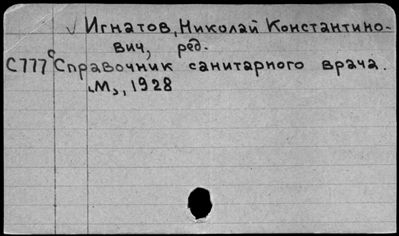 √ Игнатов, Николай Константино-
вич, ред.
С777с Справочник санитарного врача.
М., 1928